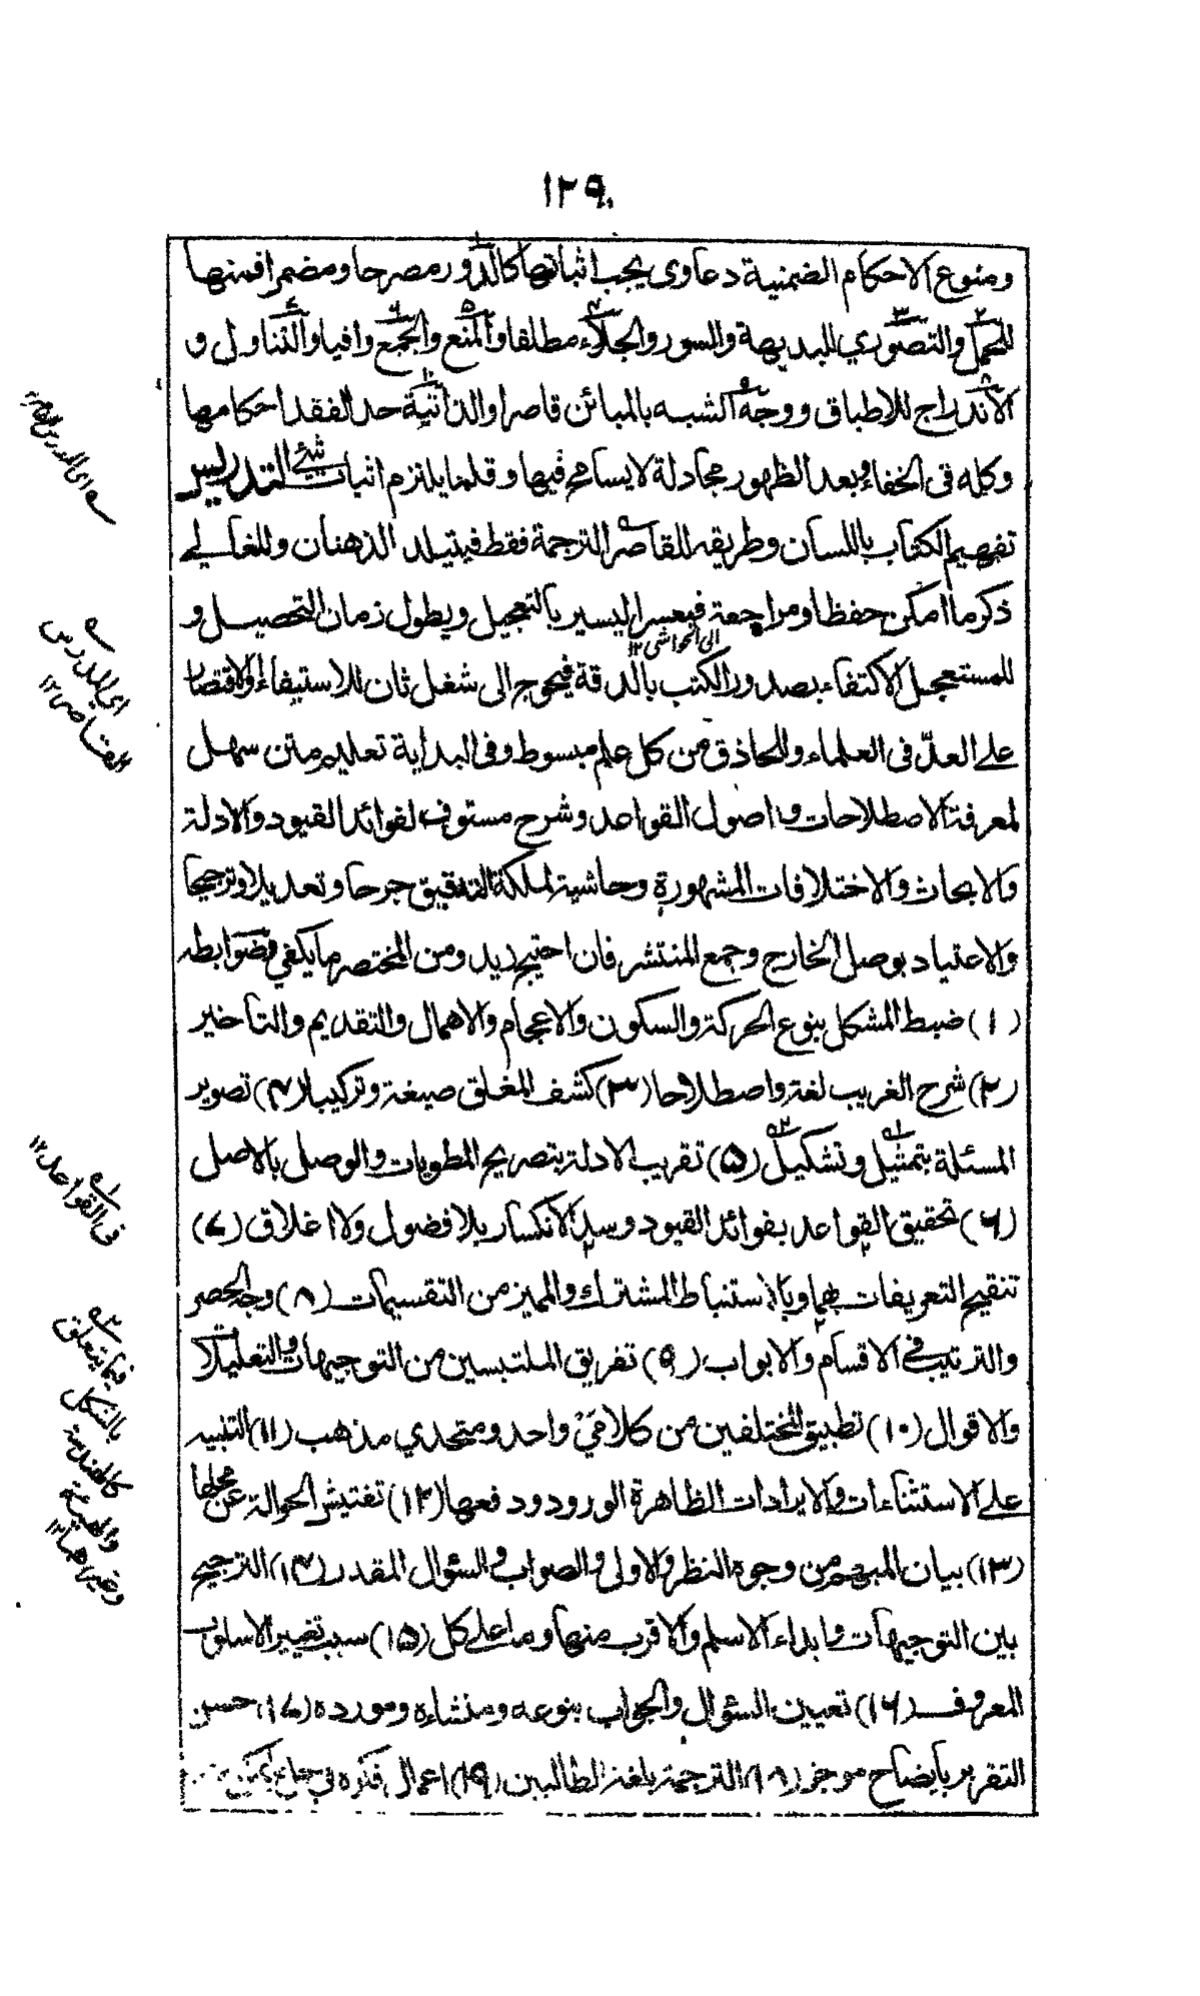 ١٢٩
ومنوع الاحكام الضمنية دعاوى يجب اثباتها كالدور مصرحا ومضمرا فمنها
للحمل والتصوري للبديهة والسور والجلاء مطلقا والمنع والجمع وافيا والتناول و
الاندراج للاطباق ووجه الشبه بالمبائن قاصرا والذاتية حد الفقد احكامها
وكله فى الخفاء وبعد الظهور مجادلة لا يسامح فيها وقلما يلتزم اثبات شئ التدريس
تفهيم الكتاب باللسان وطريقه للقاصر الترجمة فقط فيتبلد الذهنان وللمغالى
ذكر ما امكن حفظا ومراجعة فيعسر اليسير بالتعجيل ويطول زمان التحصيل و
الى الحواشى ١٢
للمستعجل الاكتفاء بصدور الكتب بالدقة فيحوج الى شغل ثان للاستيفاء والاقتصار
على العد فى العلماء وللحاذق من كل علم مبسوط وفى البداية تعليم متن سهل
لمعرفة الاصطلاحات واصول القواعد وشرح مستوف لفوائد القيود والادلة
والابحاث والاختلافات المشهورة وحاشية لملكة التدقيق جرحا وتعديلا وترجيحا
والاعتياد بوصل الخارج وجمع المنتشر فان احتيج زيد ومن المختصر ما يكفي فضوابطه
(١) ضبط المشكل بنوع الحركة والسكون والاعجام والاهمال والتقديم والتأخير
(٢) شرح الغريب لغة واصطلاحا (٣) كشف المغلق صيغة وتركيبا (٤) تصوير
المسئلة بتمثيل وتشكيل (٥) تقريب الادلة بتصريح المطويات والوصل بالاصل
(٦) تحقيق القواعد بفوائد القيود وسد الانكسار بلا فضول ولا اغلاق (٧)
تنقيح التعريفات بهما وبالاستنباط المشترك والمميز من التقسيمات (٨) وجه الحصر
والترتيب في الاقسام والابواب (٩) تفريق الملتبسين من التوجيهات والتعليلات
والاقوال (١٠) تطبيق المختلفين من كلامي واحد ومتحدي مذهب (١١) التنبيه
على الاستثناءات والايرادات الظاهرة الورود ودفعها (١٢) تفتيش الحوالة عن محلها
(١٣) بيان المبهم من وجوه النظر والاولى والصواب والسؤال المقدر (١٤) الترجيح
بين التوجيهات وابداء الاسلم والاقرب منها وما على كل (١٥) سبب تغيير الاسلوب
المعروف (١٦) تعيين السؤال والجواب بنوعه ومنشاءه ومورده (١٧) حسن
التقرير بايضاح موجز (١٨) الترجمة بلغة الطالبين (١٩) اعمال فكره في
اى للمدرس
القاصر ١٢
فى القواعد ١٢
فيما يتعلق
بالشكل
كالهندسة
والهيئة
وغيرهما ١٢